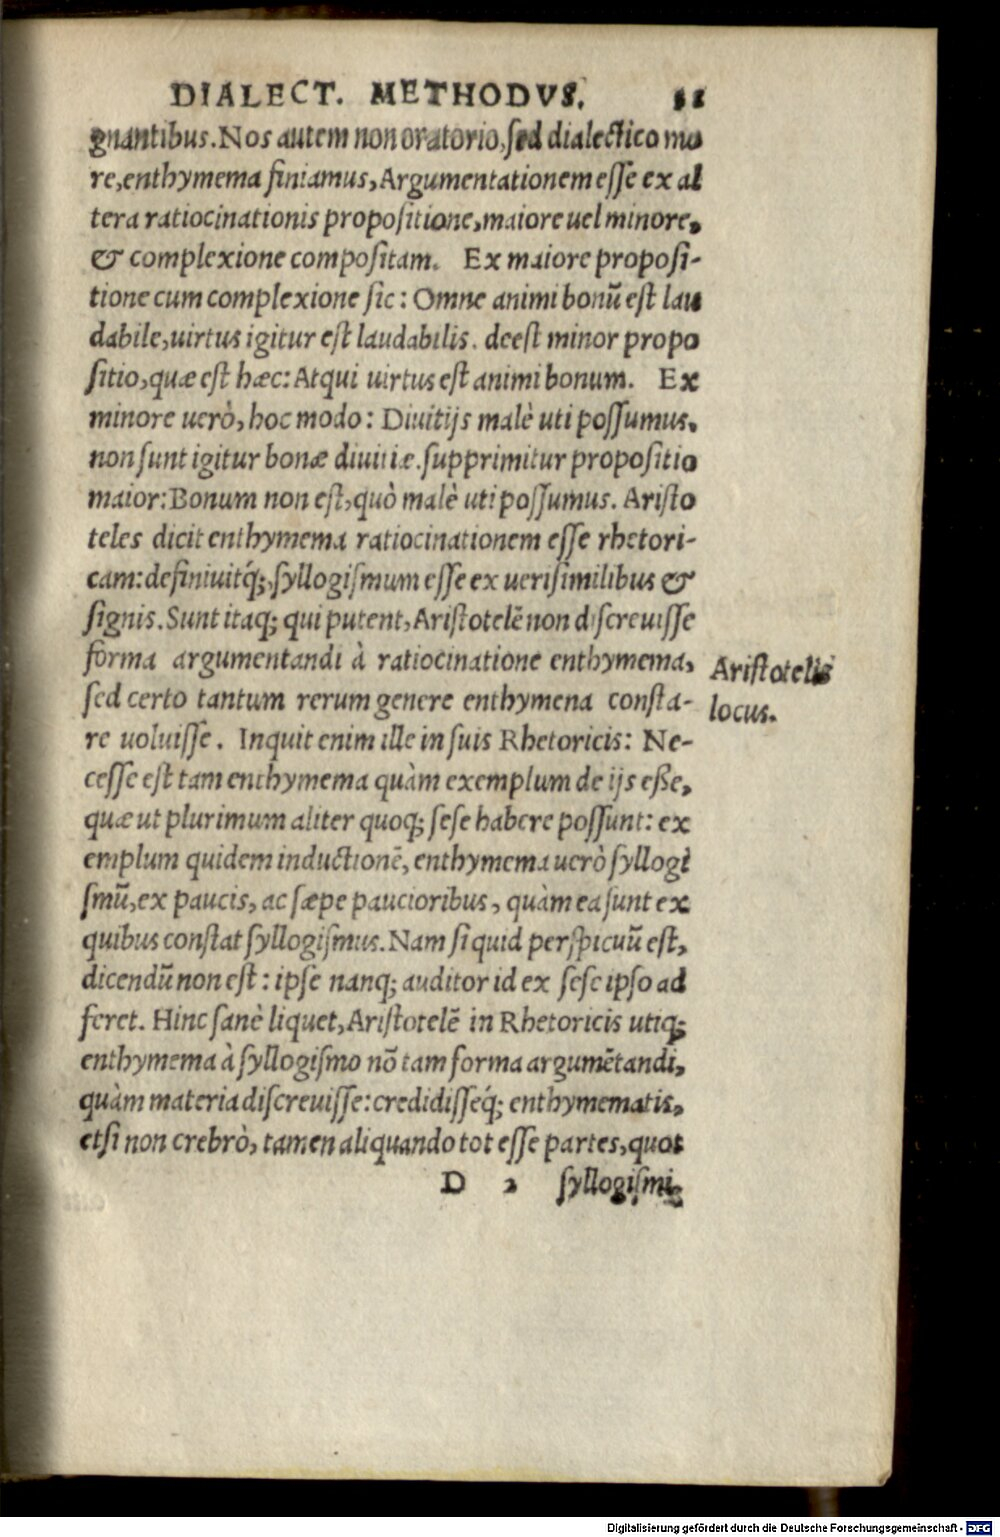 DIALECT. METHODVS.
gnantibus. Nos autem non oratorio, sed dialectico mo
re, enthymema finiamus, Argumentationem esse ex al
tera ratiocinationis propositione, maiore uel minore,
& complexione compositam. Ex maiore proposi-
tione cum complexione sic: Omne animi bonū est lau
dabile, uirtus igitur est laudabilis. deest minor propo
sitio, quæ est hæc: Atqui uirtus est animi bonum. Ex
minore uerò, hoc modo: Diuitijs malè uti possumus,
non sunt igitur bonæ diuitiæ. supprimitur propositio
maior: Bonum non est, quò malè uti possumus. Aristo
teles dicit enthymema ratiocinationem esse rhetori-
cam: definiuitq́;, syllogismum esse ex uerisimilibus &
signis. Sunt itaq; qui putent, Aristotelē non discreuisse
forma argumentandi à ratiocinatione enthymema,
sed certo tantum rerum genere enthymena consta-
re uoluisse. Inquit enim ille in suis Rhetoricis: Ne-
cesse est tam enthymema quàm exemplum de ijs eße,
quæ ut plurimum aliter quoq; sese habere possunt: ex
emplum quidem inductionē, enthymema uerò syllogi
smū, ex paucis, ac sæpe paucioribus, quàm ea sunt ex
quibus constat syllogismus. Nam si quid perspicuū est,
dicendū non est: ipse nanq; auditor id ex sese ipso ad
feret. Hinc sanè liquet, Aristotelē in Rhetoricis utiq;
enthymema à syllogismo nō tam forma argumētandi,
quàm materia discreuisse: credidisseq́; enthymematis,
etsi non crebrò, tamen aliquando tot esse partes, quot
D 2 syllogismi,
Aristotelis
locus.
Digitalisierung gefördert durch die Deutsche Forschungsgemeinschaft - DFG